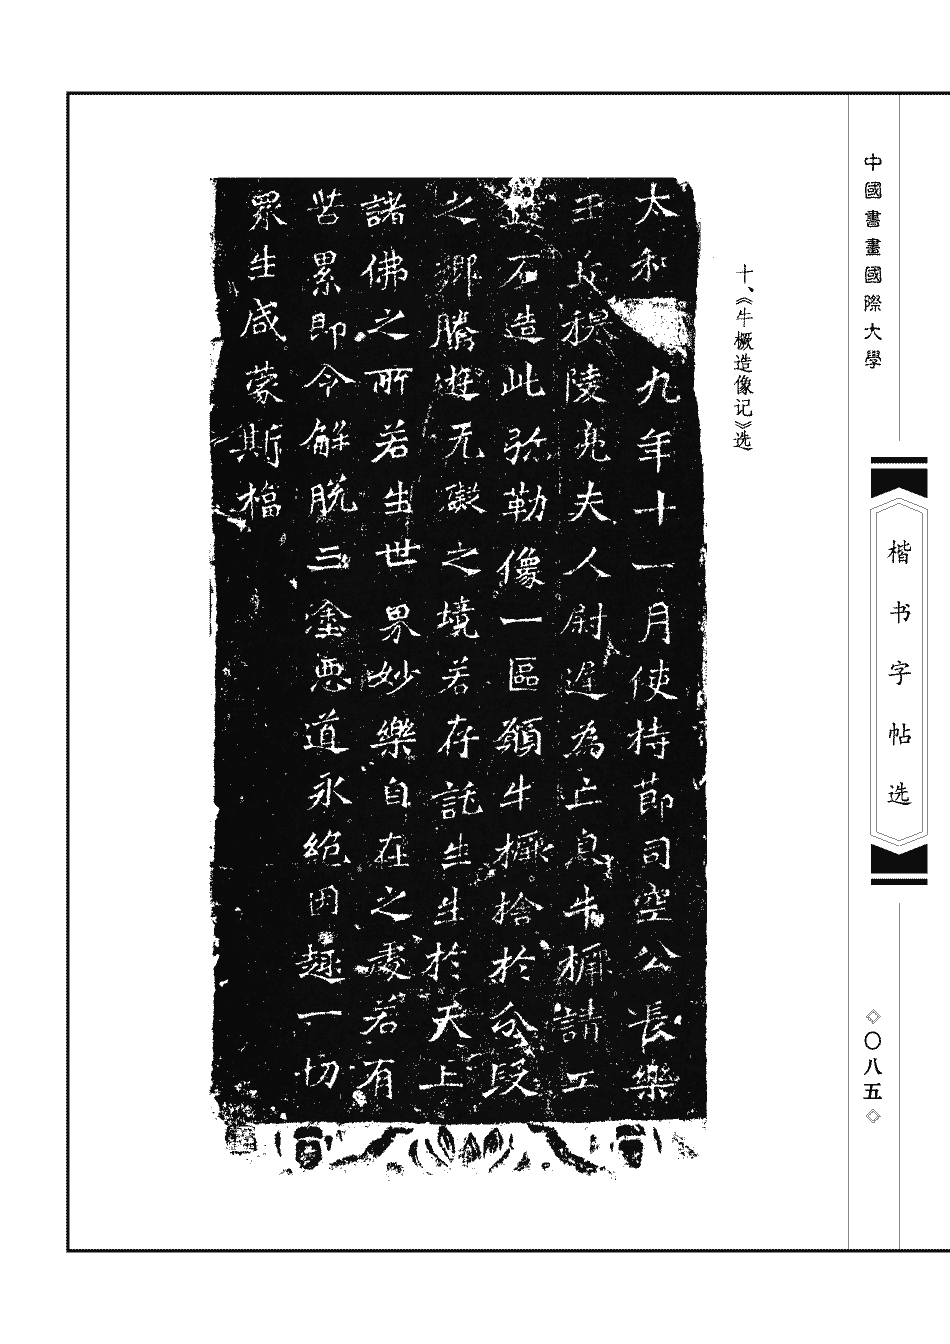 中國書畫國際大學
楷书字帖选
〇八五
十、《牛橛造像记》选
太和九年十一月使持節司空公長樂
王丘穆陵亮夫人尉遲為亡息牛橛請工
石造此弥勒像一區願牛橛捨於分段
之鄉騰遊无礙之境若存託生生於天上
諸佛之所若生世界妙樂自在之處若有
苦累即令解脱三塗惡道永絕因趣一切
眾生咸蒙斯福